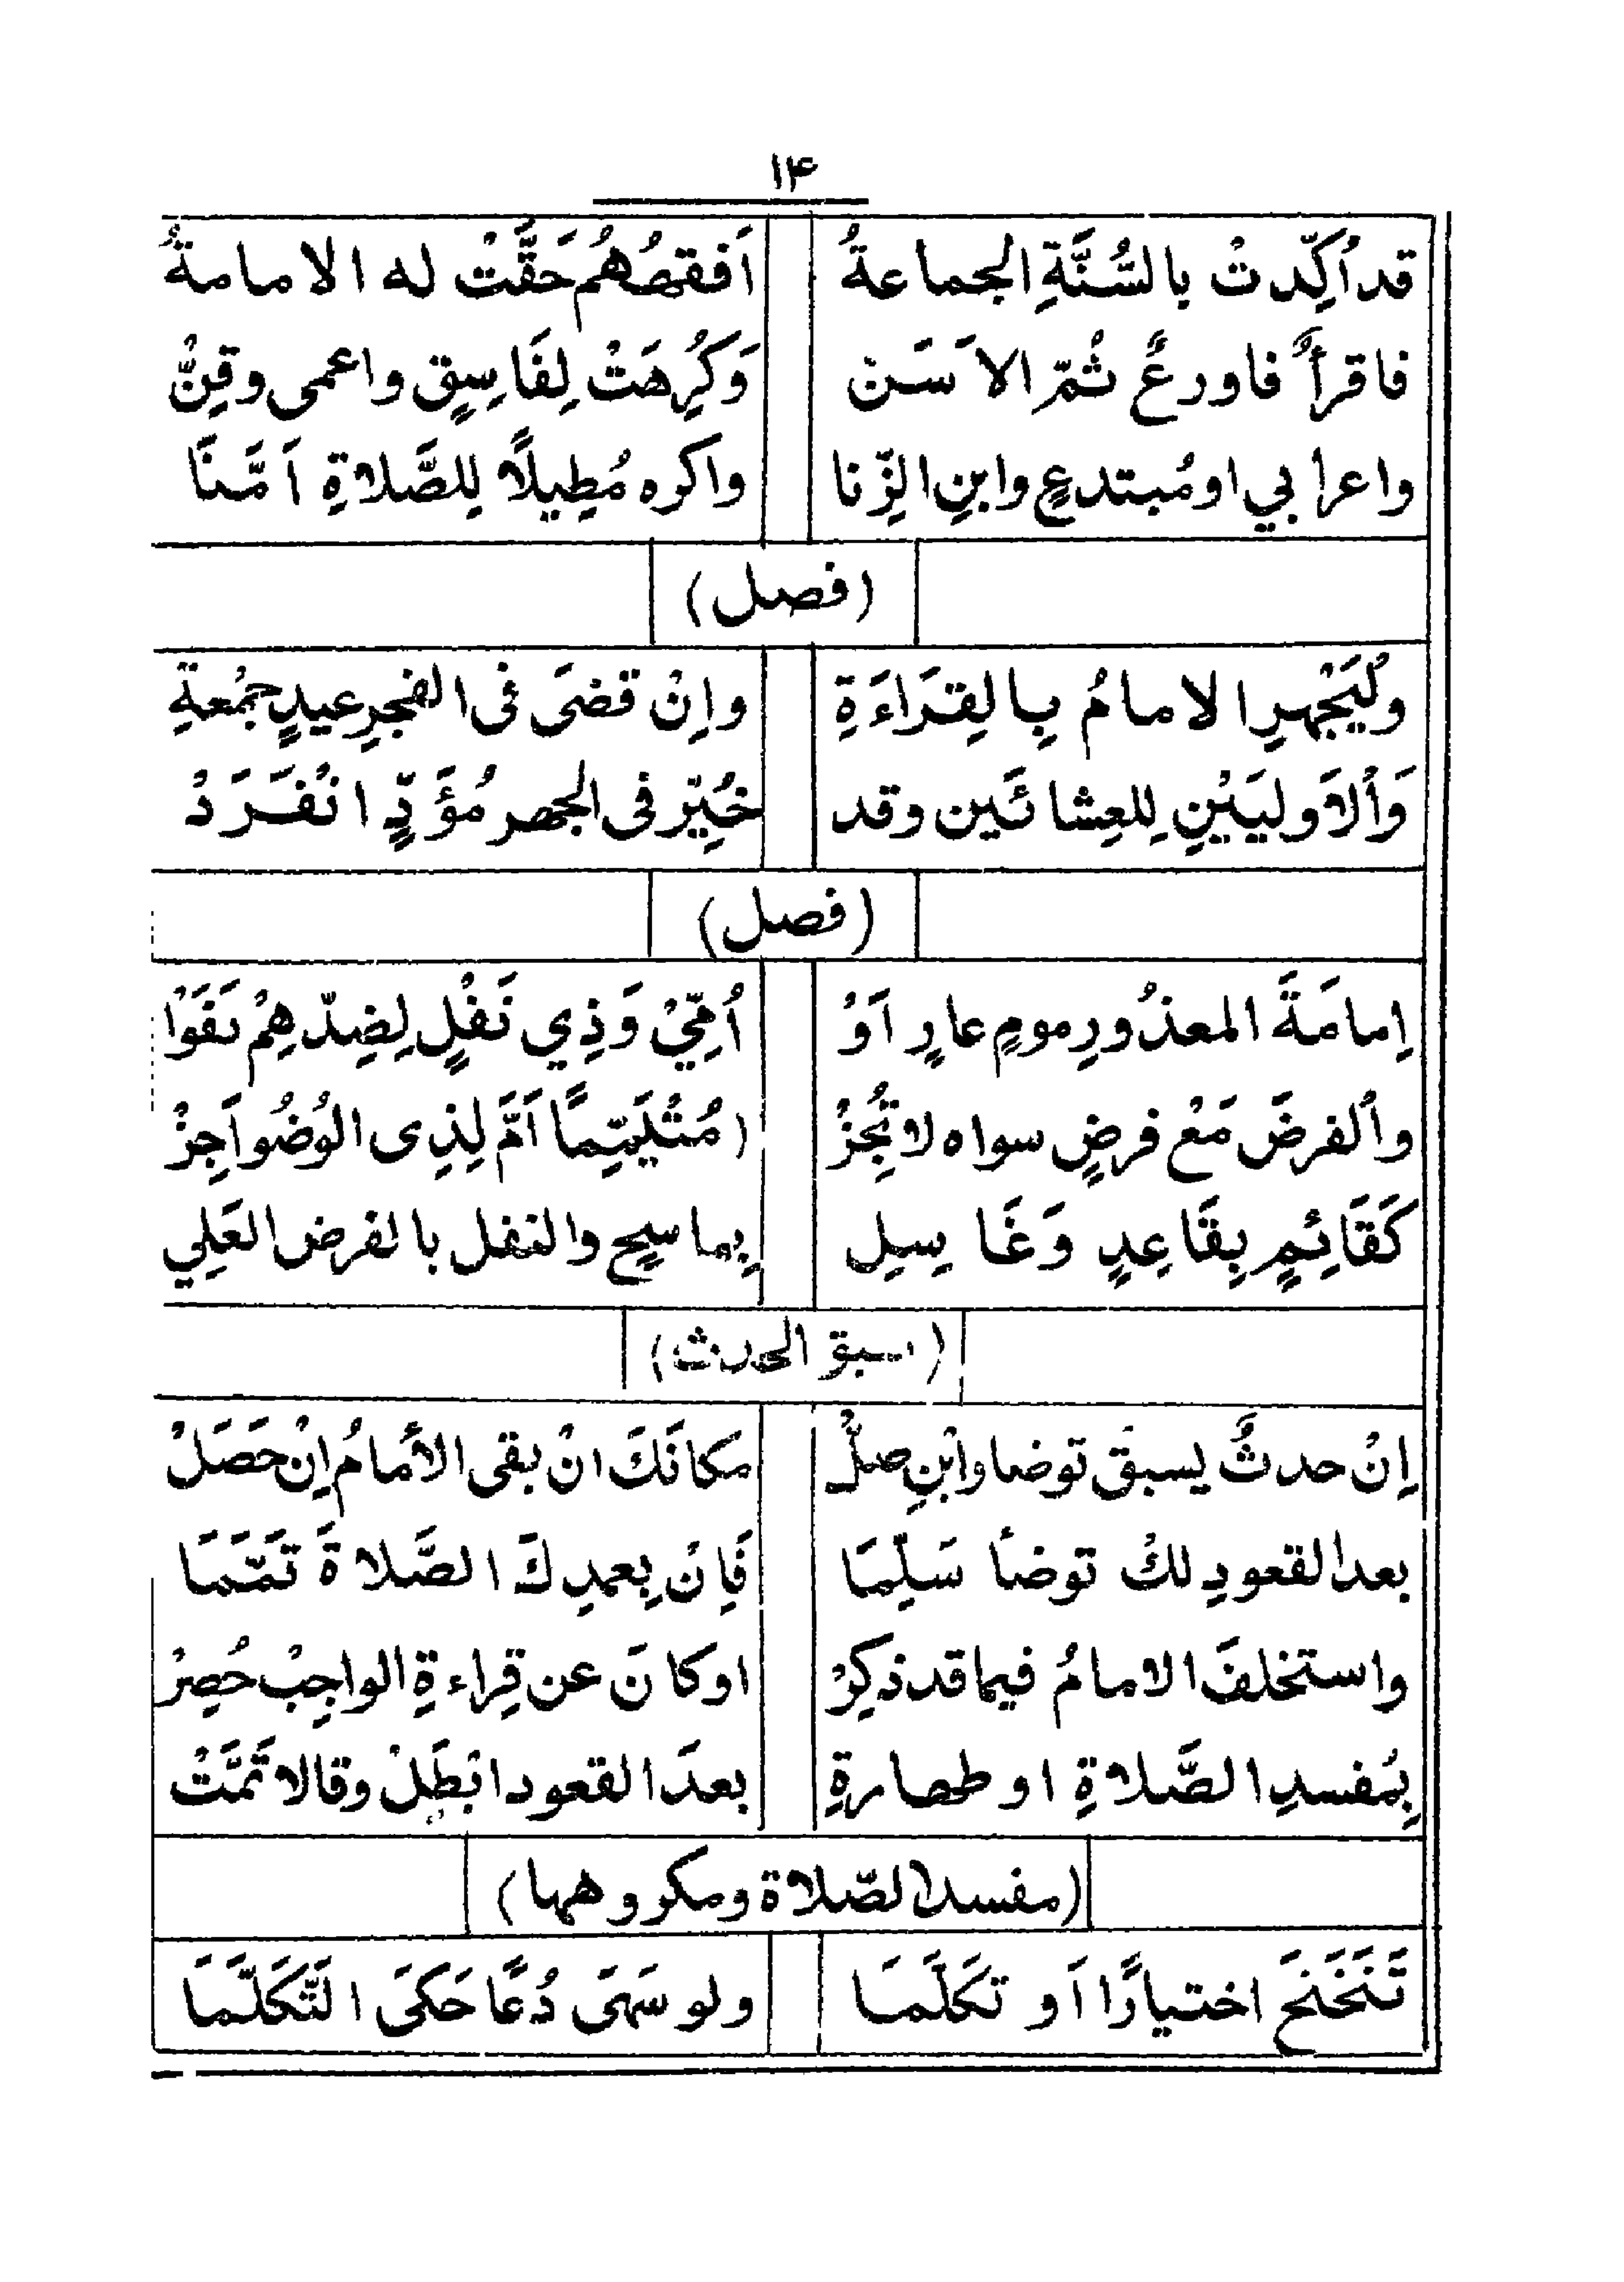 ۱۴
قد اُكِّدتْ بالسُّنَّةِ الجماعةُ    اَفقهُهُم حَقَّتْ له الامامةُ
فاقرأٌ فاورعٌ ثُمّ الاَسَنْ    وَكُرِهَتْ لِفَاسِقٍ واعمى وقِنّْ
واعرابي اومُبتدعٍ وابنِ الزِّنا    واكره مُطِيلًا لِلصَّلاةِ اَمَّنَا
(فصل)
ولْيَجْهرِ الامامُ بِالقِرَاءَةِ    وإنْ قضَى فى الفجرِ عيدٍ جمُعةِ
وَاُلاَوليَيْنِ لِلعِشائَين وقد    خُيِّر فى الجهر مُؤَدٍّ انْفَرَدْ
(فصل)
اِمامَةَ المعذُورِ مومٍ عارٍ اَوْ    اُمِّيْ وَذِي نَفْلٍ لِضِدّهِمْ نَفَوْا
واُلفرضَ مَعْ فرضٍ سواه لا تُجِزْ    مُتَيَمِّمًا اَمَّ لِذِى الوُضُو اَجِزْ
كَقَائِمٍ بِقَاعِدٍ وَغَاسِلِ    بِماسِحٍ والنفل بالفرض العَلِي
(سبق الحدث)
اِنْ حدثٌ يسبق توضا وابْنِ صلّْ    مكانَكَ انْ بقى الاُمامُ اِنْ حَصَلْ
بعد القعودِ لكْ توضأ سَلِّمَا    فَاِنْ بِعمدِكَ الصَّلاةَ تَمّمَا
واستخلفَ الامامُ فيما قد ذكِرْ    اوكانَ عن قِراءةِ الواجِبْ حُصِرْ
بِمُفسدِ الصَّلاةِ او طهارةِ    بعدَ القعود ابْطَلْ وقالا تَمَّتْ
(مفسد الصّلاة ومكروهها)
تَنَحْنَحَ اختيارًا اَو تكَلَّمَا    ولو سَهَى دُعًا حَكَى التَّكَلَّمَا